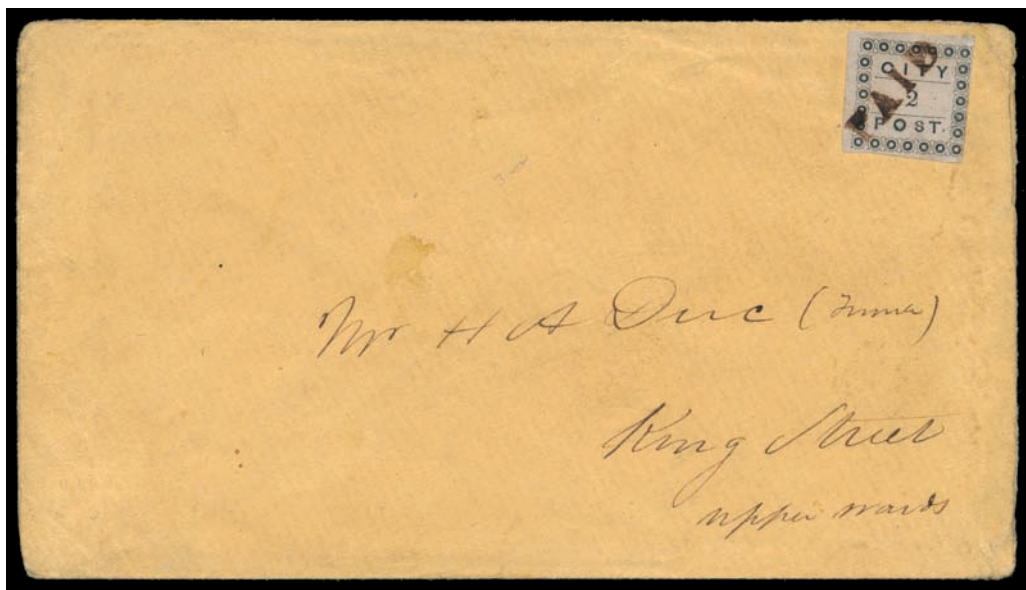 CITY
2
POST.
PAID
Mr H A Duc
King Street
upper wards